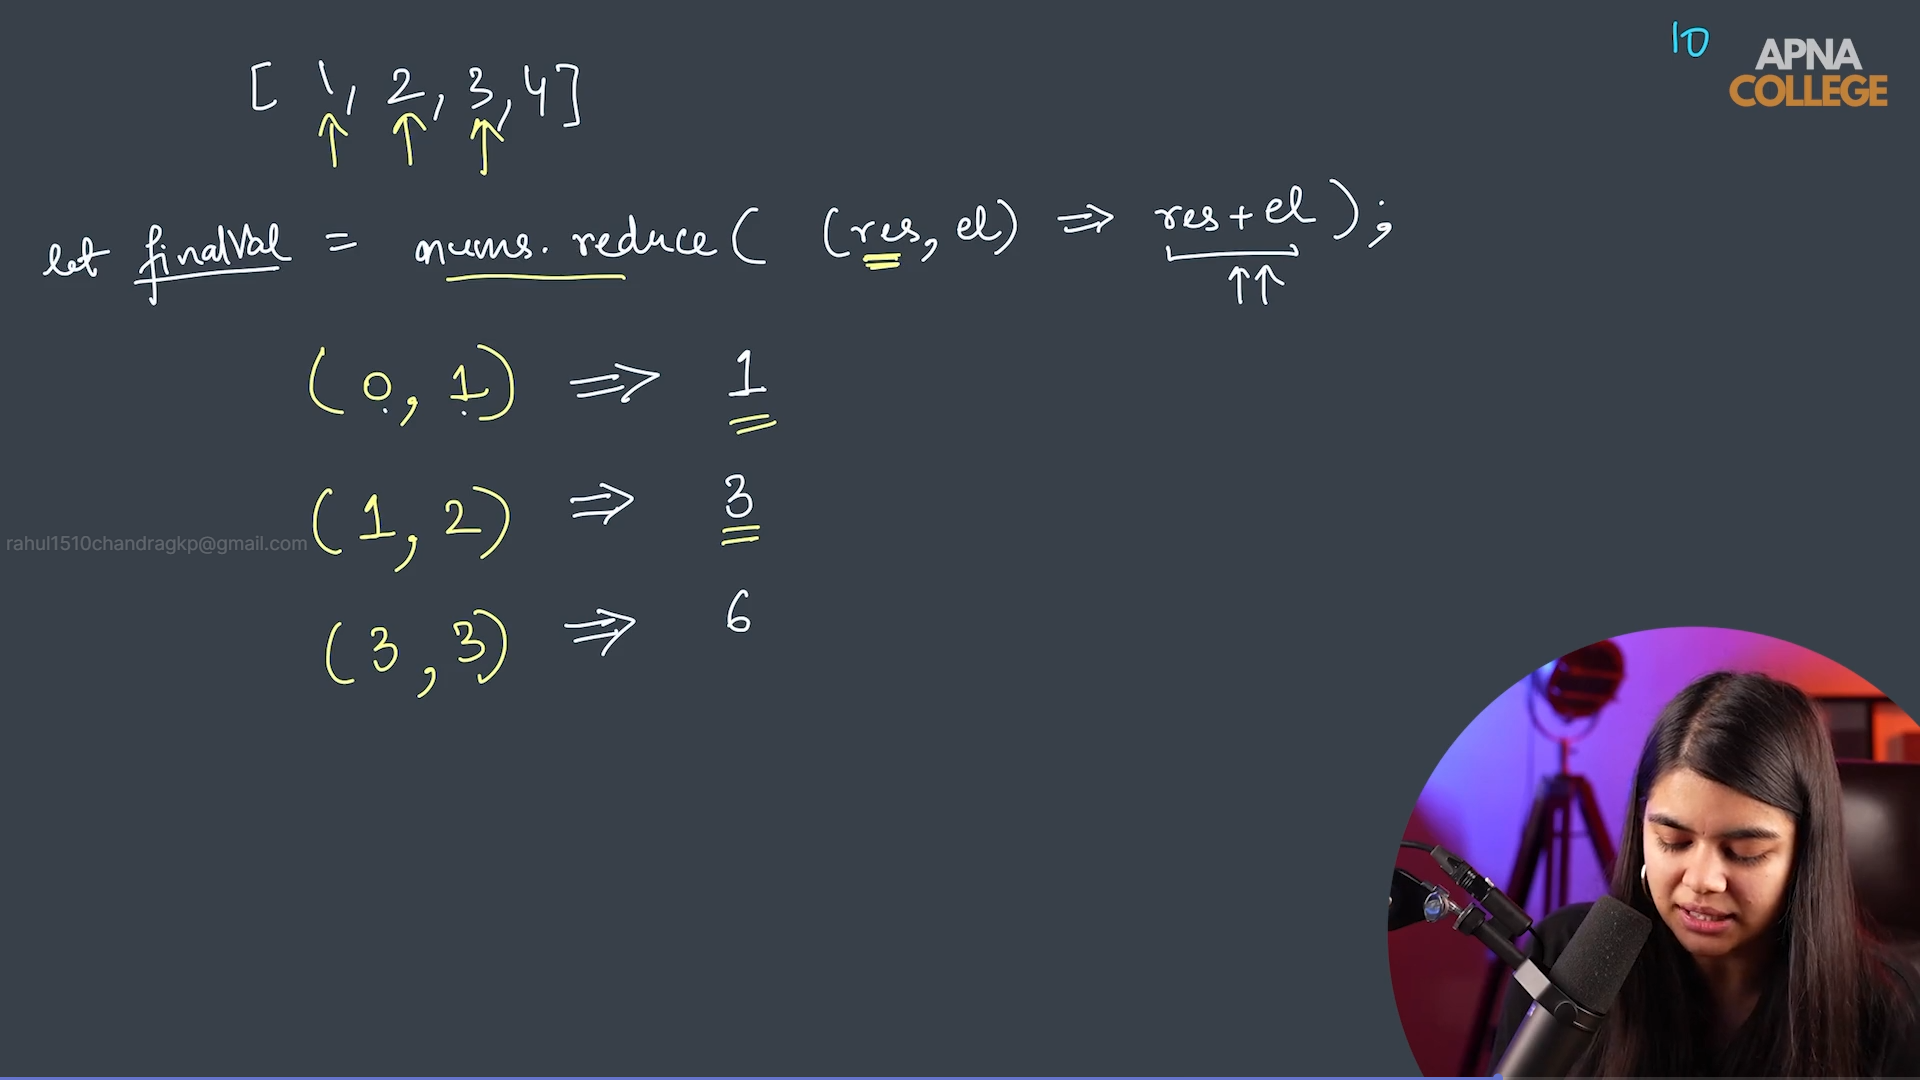 10
APNA
COLLEGE
[ 1, 2, 3, 4 ]
↑ ↑ ↑
let finalVal = nums. reduce( (res, el) => res + el );
↑↑
(0, 1) => 1
(1, 2) => 3
rahul1510chandragkp@gmail.com
(3, 3) => 6